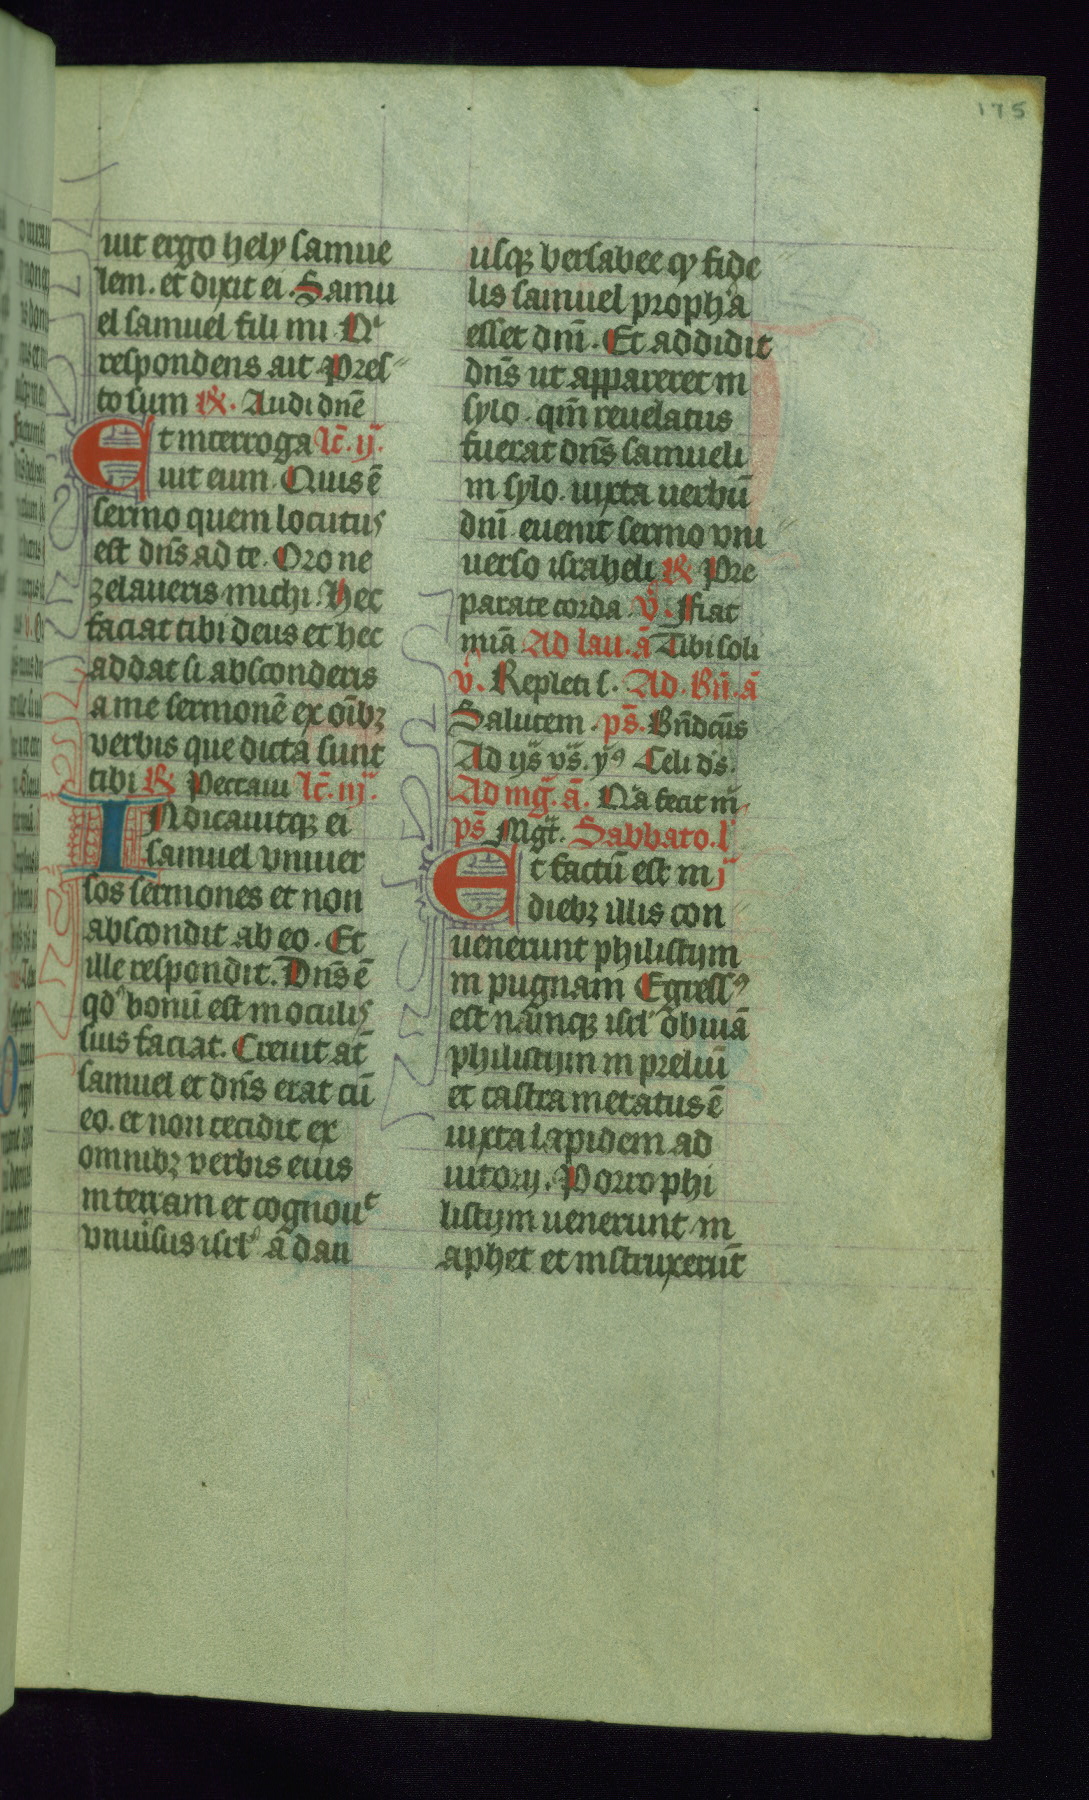 175
uit ergo hely samue
lem. et dixit ei. Samu
el samuel fili mi. Qⁱ
respondens ait. Pres
to sum ℟. Audi dnē
Et interroga lc̄. ij.
uit eum. Quis ē
sermo quem locutus
est dn̄s ad te. Oro ne
zelaueris michi. Hec
faciat tibi deus et hec
addat si absconderis
a me sermonē ex oībꝫ
verbis que dicta sunt
tibi ℟ Peccaui lc̄. iij.
INdicauitqꝫ ei
samuel vniuer
sos sermones et non
abscondit ab eo. Et
ille respondit. Dn̄s ē
qd̓ bonū est in oculis
suis faciat. Creuit at̄
samuel et dn̄s erat cū
eo. et non cecidit ex
omnibꝫ verbis eius
in terram et cognouᵗ
vniuisus isrl̓ a dan
usqꝫ bersabee qꝫ fide
lis samuel proph̄a
esset dnī. Et addidit
dn̄s ut appareret in
sylo. qm̄ reuelatus
fuerat dn̄s samueli
in sylo. iuxta uerbū
dnī. euenit sermo vni
uerso israheli ℟ Pre
parate corda. v̄. Fiat
miā Ad lau. ā Tibi soli
v̄. Repleti s. Ad. Bn̄. ā
Salutem. ps̄. Bn̄dcūs
Ad ijs̄ vs̄. yꝰ Celi d̄s.
Ad mḡ. ā. Q̄a fecit m̄
ps̄ Mḡt. Sabbato. l̓
Et factū est in j
diebꝫ illis con
uenerunt philistijm
in pugnam Egressꝰ
est namqꝫ isrl̓ obuiā
philistijm in preliū
et castrametatus ē
iuxta lapidem ad
iutorij. Porro phi
listijm uenerunt in
aphet et instruxerūt